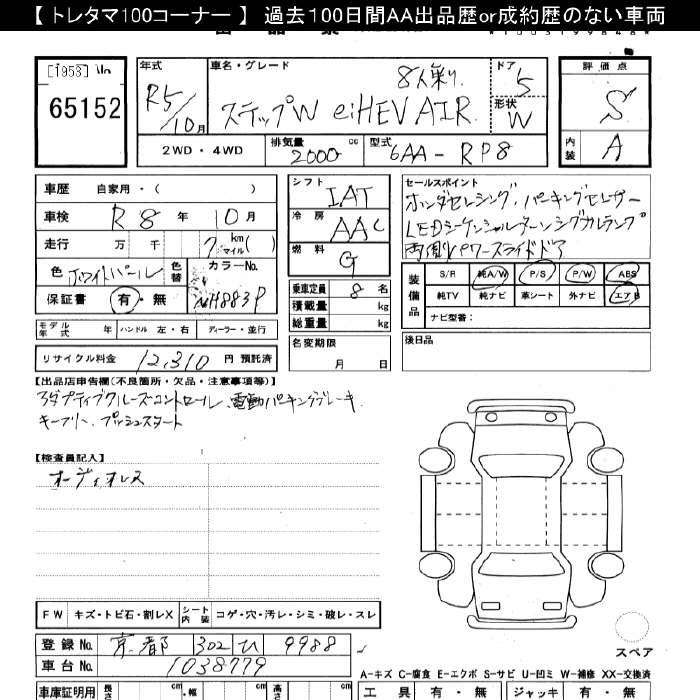 【 トレタマ100コーナー 】 過去100日間AA出品歴or成約歴のない車両
[1953] No
65152
年式
R5/10月
車名・グレード
8人乗り
ステップW e:HEV AIR
ドア
5
形状
W
評価点
S
内装
A
2WD・4WD
排気量
2000
cc
型式
6AA-RP8
車歴 自家用・( )
車検 R8 年 10 月
走行 万 千 7 km マイル ( )
色 ホワイトパール
色替
カラーNo.
NH883P
保証書 有・無
シフト
IAT
冷房
AAC
燃料
G
乗車定員 8 名
積載量 kg
総重量 kg
セールスポイント
ホンダセンシング・パーキングセンサー
LEDシーケンシャルターンシグナルランプ
両側パワースライドドア
装備品
S/R 純A/W P/S P/W ABS
純TV 純ナビ 革シート 外ナビ エアB
ナビ型番:
モデル年式 年 ハンドル 左・右 ディーラー・並行
名変期限
月 日
後日品
リサイクル料金 12,310 円 預託済
【出品店申告欄(不良箇所・欠品・注意事項等)】
アダプティブクルーズコントロール、電動パーキングブレーキ
キーフリー、プッシュスタート
【検査員記入】
オーディオレス
FW キズ・トビ石・割レX シート内装 コゲ・穴・汚レ・シミ・破レ・スレ
登録No. 京都 302 ひ 9988
車台No. 1038779
スペア
A-キズ C-腐食 E-エクボ S-サビ U-凹ミ W-補修 XX-交換済
車庫証明用 長さ cm ・幅 cm 高さ cm
工具 有・無 ジャッキ 有・無